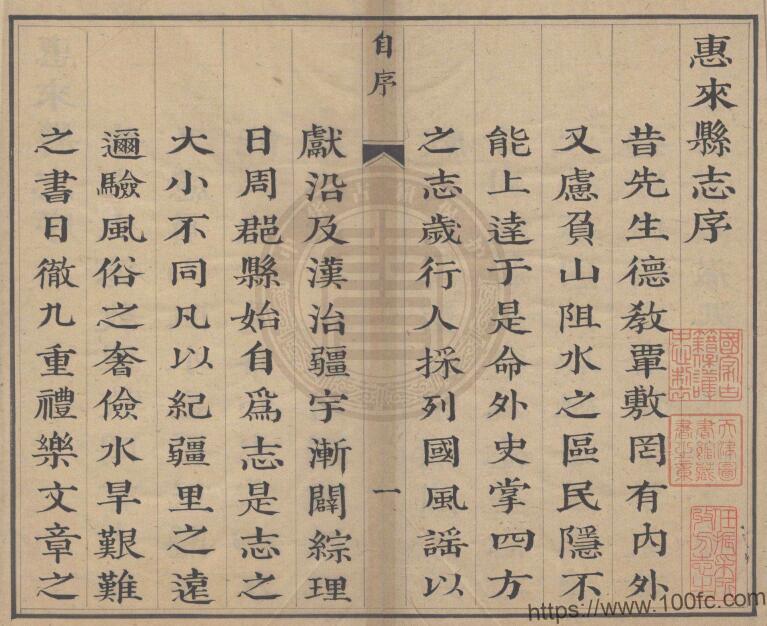 惠來縣志序
昔先生德敎覃敷罔有內外
又慮負山阻水之區民隱不
能上達于是命外史掌四方
之志歲行人採列國風謠以
自序
一
獻沿及漢治疆宇漸闢綜理
日周郡縣始自爲志是志之
大小不同凡以紀疆里之遠
邇驗風俗之奢儉水旱艱難
之書日徹九重禮樂文章之
https://www.100fc.com